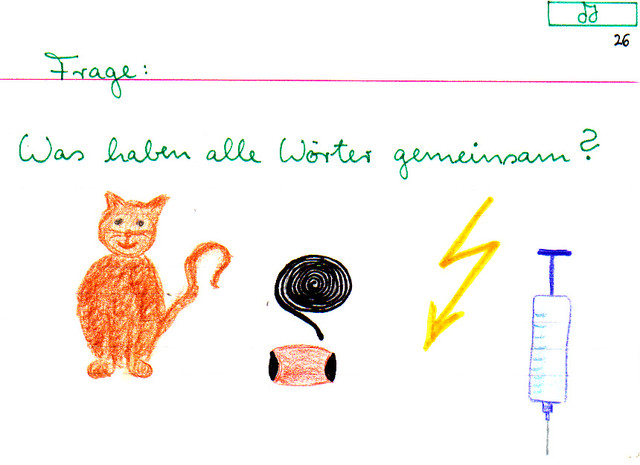 26
Frage:
Was haben alle Wörter gemeinsam?